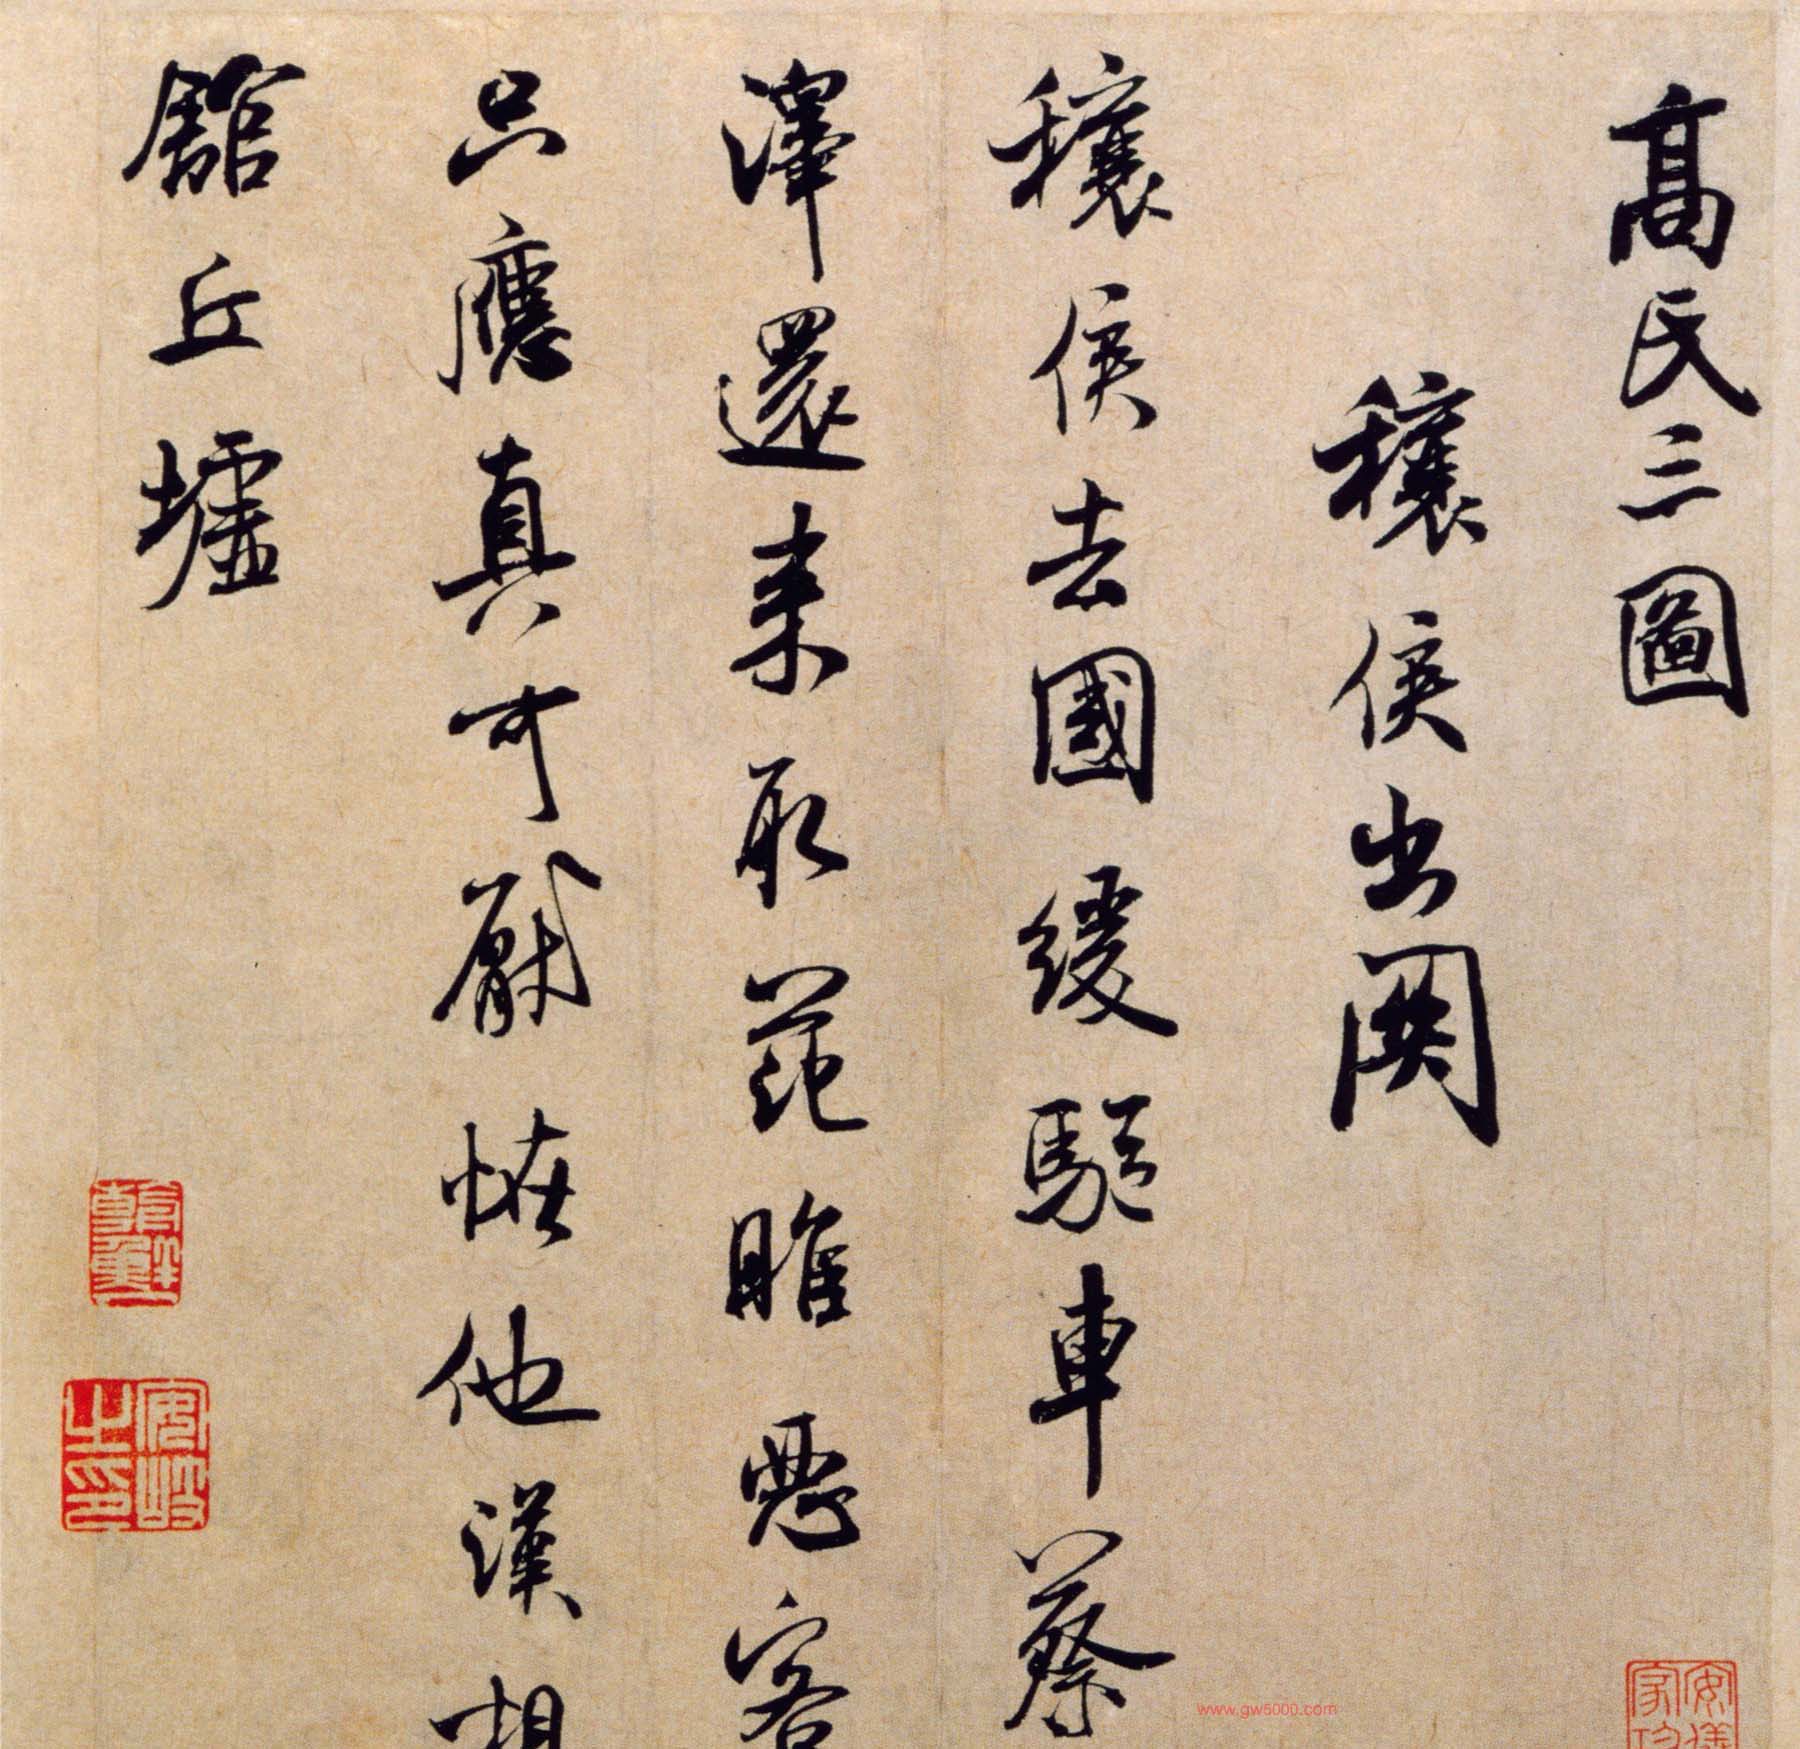 高氏三圖
穰侯出關
穰侯去國緩驅車蔡
澤還来取范睢惡客
只應真可厭恠他漢相
舘丘墟
www.gw5000.com